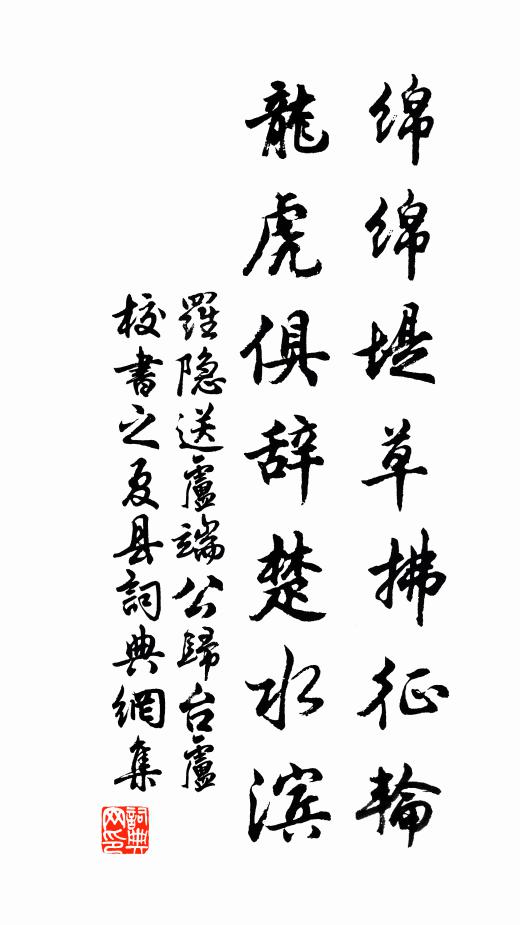 绵绵堤草拂征轮
龍虎俱辞楚水滨
羅隐送盧端公歸台盧
校書之夏县詞典網集
詞典网印